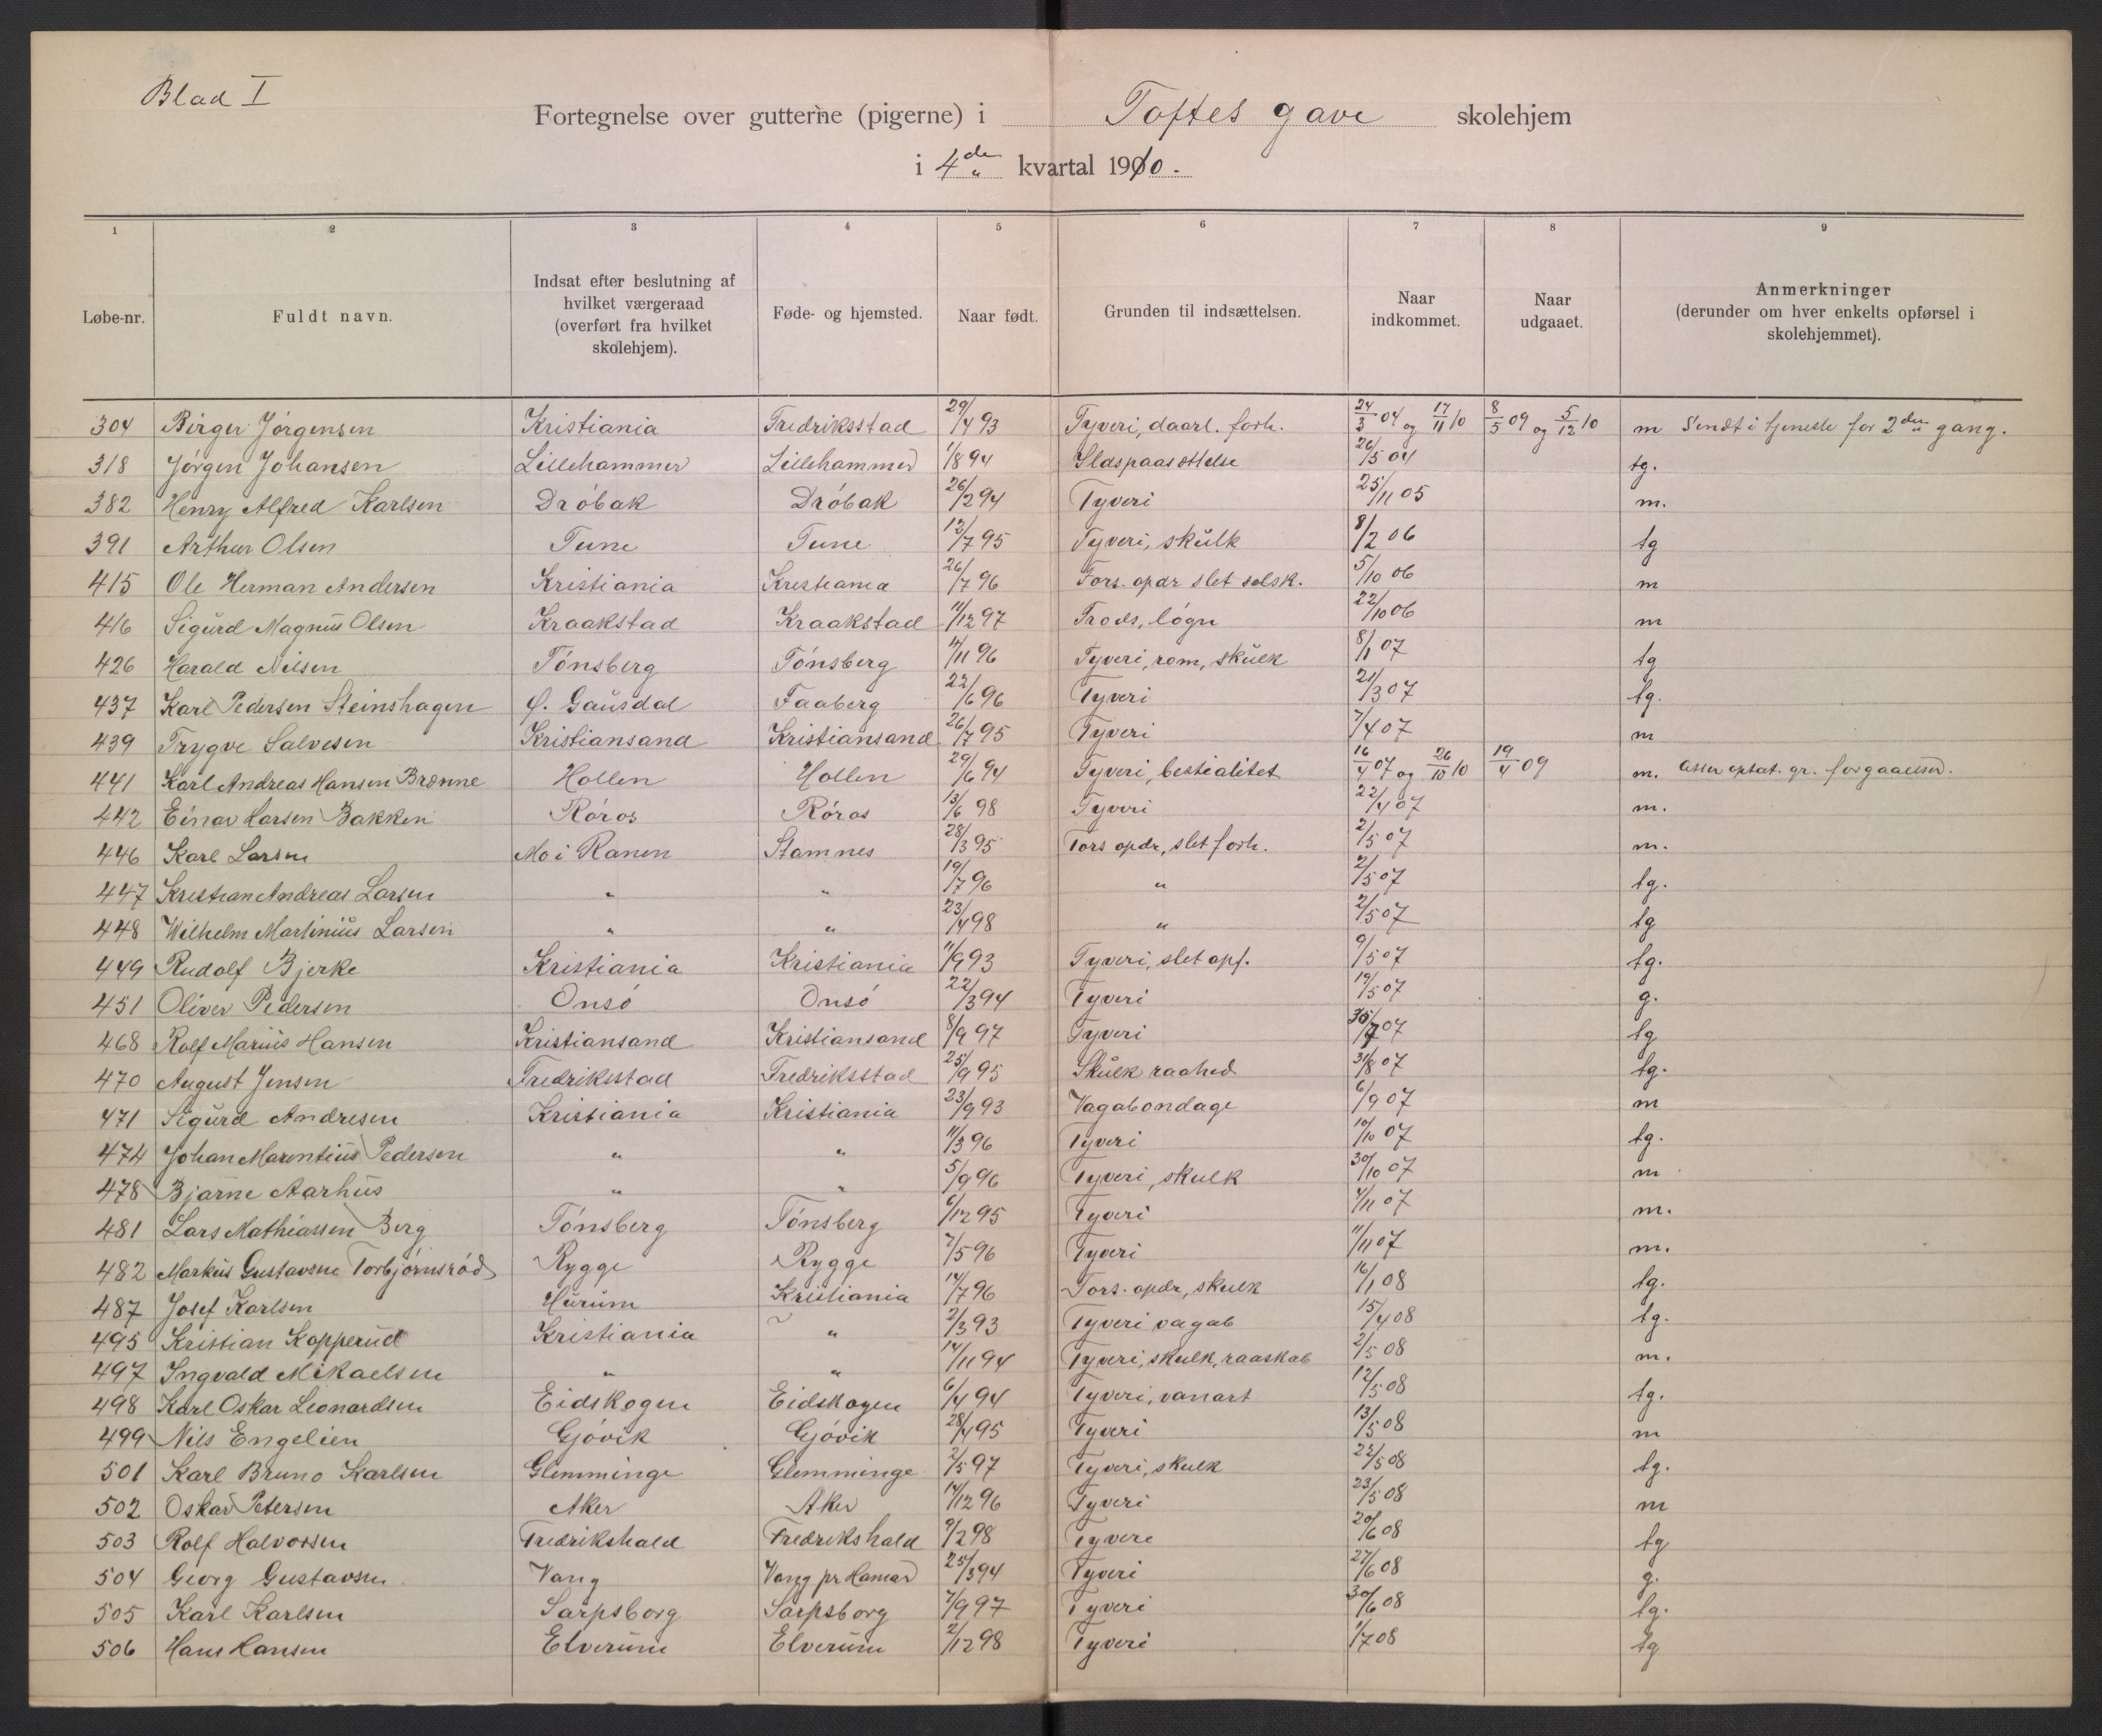 Blad I
Fortegnelse over gutterne (pigerne) i Toftes gave skolehjem
i 4de kvartal 1910.
1 2 3 4 5 6 7 8 9
Løbe-nr. Fuldt navn. Indsat efter beslutning af hvilket værgeraad (overført fra hvilket skolehjem). Føde- og hjemsted. Naar født. Grunden til indsættelsen. Naar indkommet. Naar udgaaet. Anmerkninger (derunder om hver enkelts opførsel i skolehjemmet).
304 Birger Jörgensen Kristiania Fredriksstad 29/4 93 Tyveri, daarl. forh. 24/3 04 og 17/11 10 8/5 09 og 5/12 10 m Sendt i tjeneste for 2den gang.
318 Jörgen Johansen Lillehammer Lillehammer 1/8 94 Ildspaasættelse 26/5 04 tg.
382 Henry Alfred Karlsen Dróbak Dróbak 26/2 94 Tyveri 25/11 05 m.
391 Arthur Olsen Tune Tune 12/7 95 Tyveri, skulk 8/2 06 tg
415 Ole Herman Andersen Kristiania Kristiania 26/7 96 Fors. opdr slet selsk. 5/10 06 m
416 Sigurd Magnus Olsen Kraakstad Kraakstad 11/12 97 Trods, lógn 22/10 06 m
426 Harald Nilsen Tónsberg Tónsberg 4/11 96 Tyveri, röm, skulk 8/1 07 tg
437 Karl Pedersen Steinshagen Ø. Gausdal Faaberg 22/6 96 Tyveri 21/3 07 tg.
439 Trygve Salvesen Kristiansand Kristiansand 26/7 95 Tyveri 7/4 07 m
441 Karl Andreas Hansen Brønne Hollen Hollen 29/6 94 Tyveri, bestialitet 16/4 07 og 26/10 10 19/4 09 m. atter optat. gr. forgaaelser.
442 Einar Larsen Bakken Róros Róros 13/6 98 Tyveri 22/4 07 m.
446 Karl Larsen Mo i Ranen Stamnes 28/3 95 Fors opdr, slet forh. 2/5 07 m.
447 Kristian Andreas Larsen " " 19/7 96 " 2/5 07 tg.
448 Wilhelm Martinius Larsen " " 23/4 98 " 2/5 07 tg
449 Rudolf Bjerke Kristiania Kristiania 11/9 93 Tyveri, slet opf. 9/5 07 tg.
451 Oliver Pedersen Onsó Onsó 22/3 94 Tyveri 19/5 07 g.
468 Rolf Marius Hansen Kristiansand Kristiansand 8/9 97 Tyveri 07 tg
470 August Jensen Fredriksstad Fredriksstad 25/9 95 Skulk raahed 31/8 07 tg.
471 Sigurd Andresen Kristiania Kristiania 23/9 93 Vagabondage 6/9 07 m
474 Johan Marentius Pedersen " " 11/3 96 Tyveri 10/10 07 tg.
478 Bjarne Aarhus " " 5/9 96 Tyveri, skulk 30/10 07 m
481 Lars Mathiassen Berg Tónsberg Tónsberg 6/12 95 Tyveri 4/11 07 m.
482 Markus Gustavsen Torbjórnsród Rygge Rygge 7/5 96 Tyveri 11/11 07 m.
487 Josef Karlsen Hurum Kristiania 14/7 96 Fors. opdr, skulk 16/1 08 tg.
495 Kristian Kopperud Kristiania " 2/3 93 Tyveri vagab 15/4 08 tg.
497 Ingvald Mikaelsen " " 14/11 94 Tyveri, skulk, raaskab 2/5 08 m.
498 Karl Oskar Leonardsen Eidskogen Eidskogen 6/4 94 Tyveri, vanart 12/5 08 tg.
499 Nils Engelien Gjóvik Gjóvik 28/4 95 Tyveri 13/5 08 m
501 Karl Bruno Karlsen Glemminge Glemminge 2/5 97 Tyveri, skulk 22/5 08 tg.
502 Oskar Petersen Aker Aker 14/12 96 Tyveri 23/5 08 m
503 Rolf Halvorsen Fredrikshald Fredrikshald 9/2 98 Tyveri 20/6 08 tg
504 Georg Gustavsen Vang Vang pr Hamar 25/3 94 Tyveri 27/6 08 g.
505 Karl Karlsen Sarpsborg Sarpsborg 7/9 97 Tyveri 30/6 08 tg.
506 Hans Hansen Elverum Elverum 2/12 98 Tyveri 1/7 08 tg